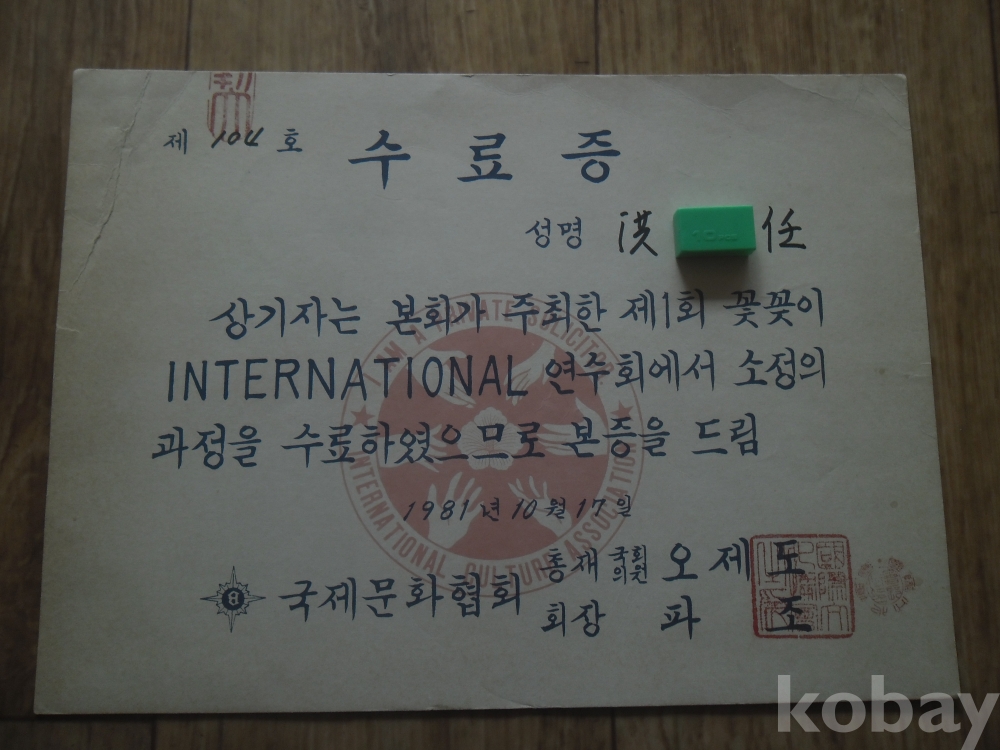 제 104 호
수료증
성명 洪 任
상기자는 본회가 주최한 제1회 꽃꽂이
INTERNATIONAL 연수회에서 소정의
과정을 수료하였으므로 본증을 드림
1981년 10월 17일
국제문화협회
총재 국회의원 오제도
회장 파조
INTERNATIONAL CULTURE ASSOCIATION
kobay